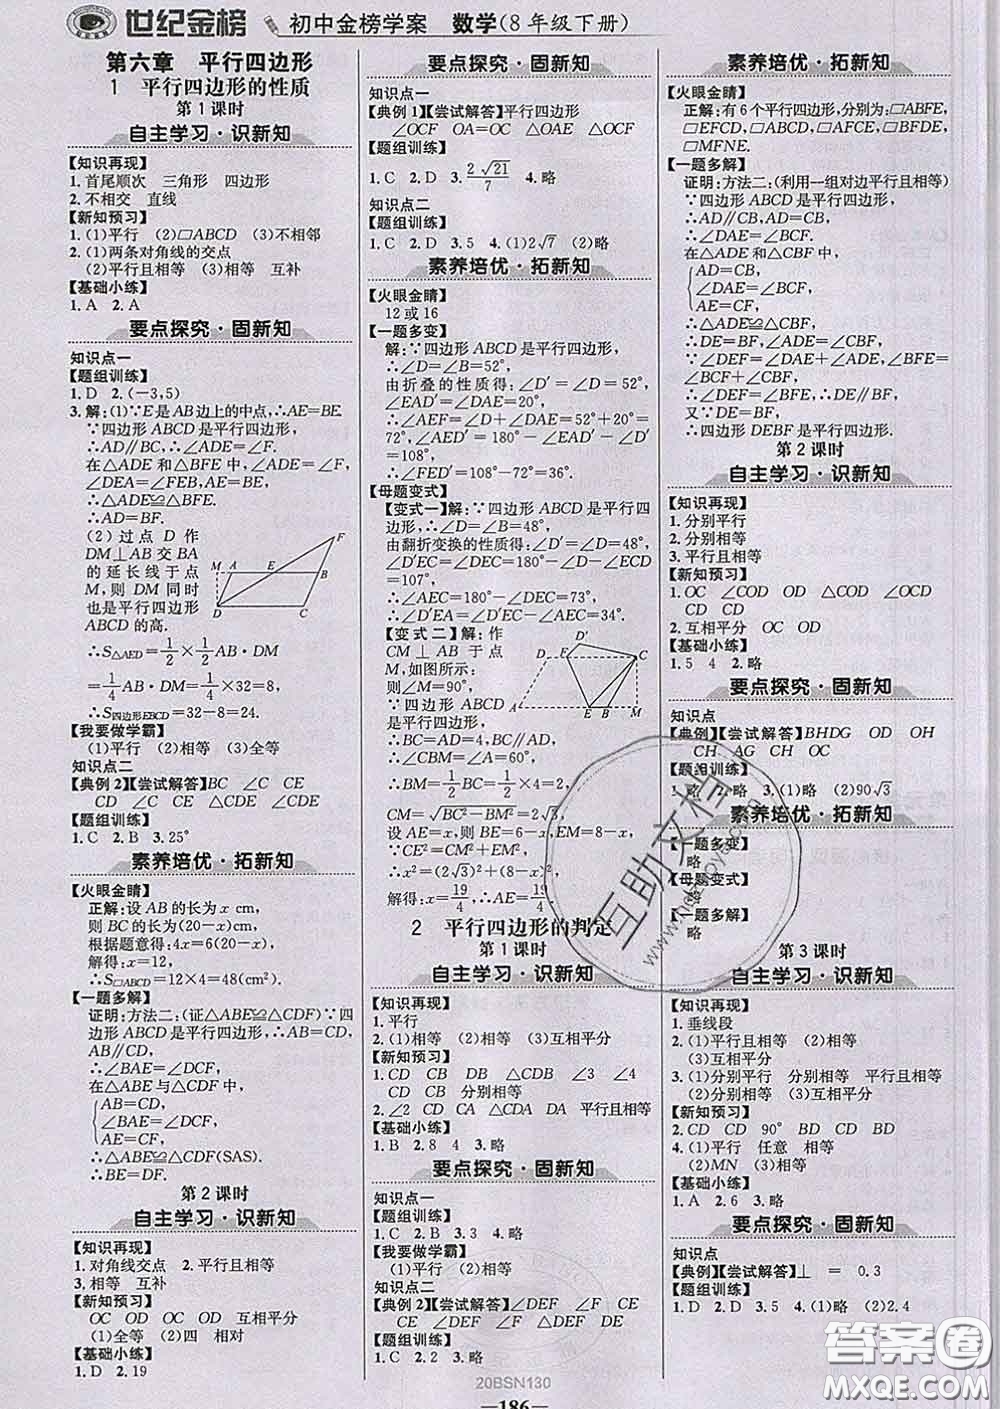 世纪金榜 初中金榜学案 数学(8年级下册)
第六章 平行四边形
1 平行四边形的性质
第1课时
自主学习·识新知
【知识再现】
1.首尾顺次 三角形 四边形
2.不相交 直线
【新知预习】
1.(1)平行 (2)□ABCD (3)不相邻
2.(1)两条对角线的交点
(2)平行且相等 (3)相等 互补
【基础小练】
1.A 2.A
要点探究·固新知
知识点一
【题组训练】
1.D 2.(-3,5)
3.解:(1)∵E是AB边上的中点,∴AE=BE.
∵四边形ABCD是平行四边形,
∴AD//BC,∴∠ADE=∠F.
在△ADE和△BFE中,∠ADE=∠F,
∠DEA=∠FEB,AE=BE,
∴△ADE≌△BFE.
∴AD=BF.
(2)过点D作
DM⊥AB交BA
的延长线于点
M,则DM同时
也是平行四边形
ABCD的高.
F
M A E B
D C
∴S△AED=1/2×1/2AB·DM
=1/4AB·DM=1/4×32=8,
∴S四边形EBCD=32-8=24.
【我要做学霸】
(1)平行 (2)相等 (3)全等
知识点二
【典例2】【尝试解答】BC ∠C CE
CD ∠D CD CD CE
【题组训练】
1.C 2.B 3.25°
素养培优·拓新知
【火眼金睛】
正解:设AB的长为x cm,
则BC的长为(20-x)cm,
根据题意得:4x=6(20-x),
解得:x=12,
∴S□ABCD=12×4=48(cm²).
【一题多解】
证明:方法二:(证△ABE≌△CDF)∵四
边形ABCD是平行四边形,∴AB=CD,
AB//CD,
∴∠BAE=∠DCF.
在△ABE与△CDF中,
AB=CD,
∠BAE=∠DCF,
AE=CF,
∴△ABE≌△CDF(SAS).
∴BE=DF.
第2课时
自主学习·识新知
【知识再现】
1.对角线交点 2.平行且相等
3.相等 互补
【新知预习】
OB OD OC OD 互相平分
(1)全等 (2)四 相对
【基础小练】
1.D 2.19
要点探究·固新知
知识点一
【典例1】【尝试解答】平行四边形
∠OCF OA=OC △OAE △OCF
【题组训练】
1.C 2.D 3.2√21/7 4.略
知识点二
【题组训练】
1.C 2.D 3.5 4.(1)2√7 (2)略
素养培优·拓新知
【火眼金睛】
12或16
【一题多变】
解:∵四边形ABCD是平行四边形,
∴∠D=∠B=52°,
由折叠的性质得:∠D′=∠D=52°,
∠EAD′=∠DAE=20°,
∴∠AEF=∠D+∠DAE=52°+20°=
72°,∠AED′=180°-∠EAD′-∠D′=
108°,
∴∠FED′=108°-72°=36°.
【母题变式】
【变式一】解:∵四边形ABCD是平行四
边形,∴∠D=∠B=48°,
由翻折变换的性质得:∠D′=∠D=48°,
∠D′EC=∠DEC=180°-∠D-∠ECD
=107°,
∴∠AEC=180°-∠DEC=73°,
∴∠D′EA=∠D′EC-∠AEC=34°.
【变式二】解:作
CM⊥AB于点
M,如图所示:
则∠M=90°,
∵四边形ABCD
是平行四边形,
D′
D C
A E B M
∴BC=AD=4,BC//AD,
∴∠CBM=∠A=60°,
∴BM=1/2BC=1/2×4=2,
CM=√(BC²-BM²)=2√3,
设AE=x,则BE=6-x=EM=8-x,
∵CE²=CM²+EM²,
∴x²=(2√3)²+(8-x)²,
解得:x=19/4,∴AE=19/4.
2 平行四边形的判定
第1课时
自主学习·识新知
【知识再现】
1.平行
2.(1)相等 (2)相等 (3)互相平分
【新知预习】
1.CD CB DB △CDB ∠3 ∠4
CD CB 分别相等
2.∠2 CD CA △CDA DA 平行且相等
【基础小练】
1.B 2.8 4 3.略
要点探究·固新知
知识点一
【题组训练】
1.C 2.B 3.3 4.略
【我要做学霸】
(1)平行 (2)相等
知识点二
【典例2】【尝试解答】∠DEF ∠F CE
CE ∠DEF DE DE CE
【题组训练】
1.C 2.2 3.略
素养培优·拓新知
【火眼金睛】
正解:有6个平行四边形,分别为:□ABFE,
□EFCD,□ABCD,□AFCE,□BFDE,
□MFNE.
【一题多解】
证明:方法二:(利用一组对边平行且相等)
∵四边形ABCD是平行四边形,
∴AD//CB,AD=CB,
∴∠DAE=∠BCF.
在△ADE和△CBF中,
AD=CB,
∠DAE=∠BCF,
AE=CF,
∴△ADE≌△CBF,
∴DE=BF,∠ADE=∠CBF,
∵∠DEF=∠DAE+∠ADE,
∠BFE=∠BCF+∠CBF,
∴∠DEF=∠BFE,∴DE//BF,
又∵DE=BF,
∴四边形DEBF是平行四边形.
第2课时
自主学习·识新知
【知识再现】
1.分别平行
2.分别相等
3.平行且相等
【新知预习】
1.OC ∠COD OD △COD ∠OCD
CD CD
2.互相平分 OC OD
【基础小练】
1.5 4 2.略
要点探究·固新知
知识点
【典例】【尝试解答】BHDG OD OH
CH AG CH OC
【题组训练】
1.略 2.略 3.(1)略 (2)90√3
素养培优·拓新知
【一题多变】
略
【母题变式】
略
【一题多解】
略
第3课时
自主学习·识新知
【知识再现】
1.垂线段
2.(1)平行且相等 (2)相等
(3)互相平分
3.(1)分别平行 分别相等 平行且相等
(2)分别相等 (3)互相平分
【新知预习】
2.CD CD 90° BD CD BD
4.(1)平行 任意 相等
(2)MN (3)相等
【基础小练】
1.A 2.6 3.略
要点探究·固新知
知识点
【典例】【尝试解答】⊥ = 0.3
【题组训练】
1.D 2.D 3.5 4.(1)略 (2)2.4
互助文档
20BSN130
—186—
答案圈
MXQE.COM